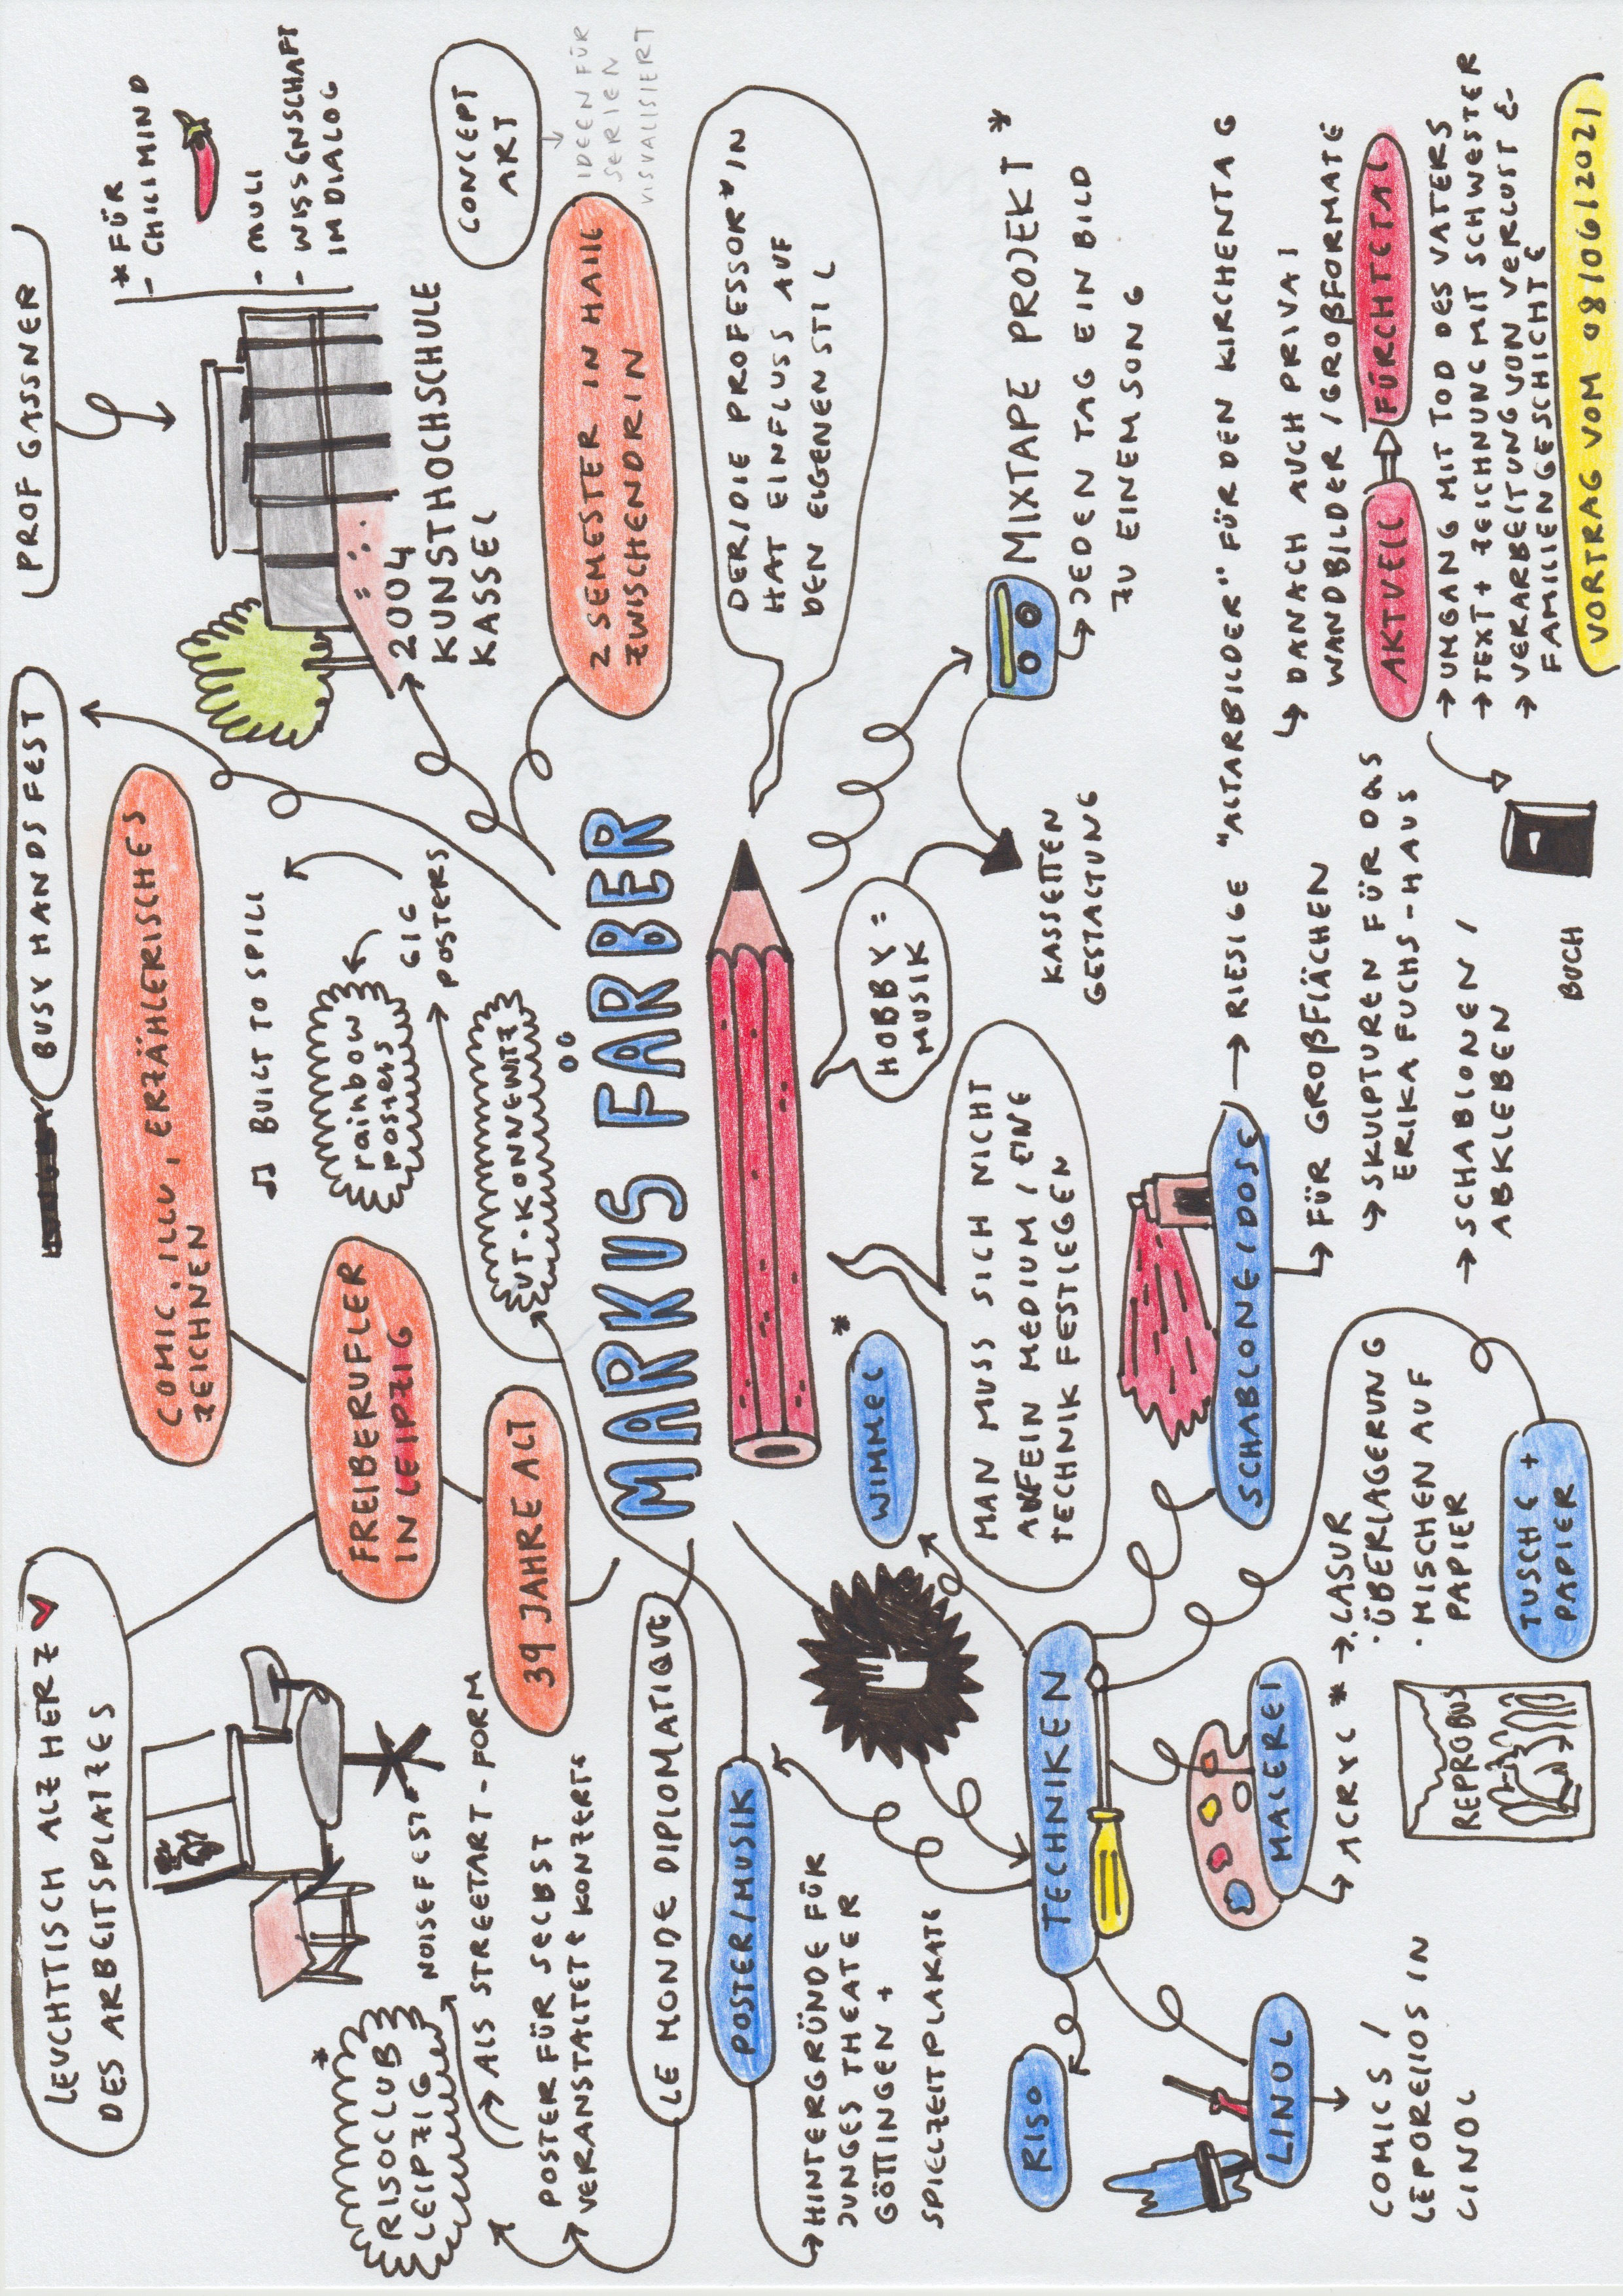 LEUCHTTISCH ALZ HERZ
DES ARBEITSPLATZES
BUSY HANDS FEST
PROF GASSNER
*FÜR
- CHILIMIND
- MULI
- WISSENSCHAFT
IM DIALOG
COMIC, ILLU, ERZÄHLERISCHES
ZEICHNEN
BUILT TO SPILL
FREIBERUFLER
IN LEIPZIG
rainbow
posters
GIG
POSTERS
2004
KUNSTHOCHSCHULE
KASSEL
CONCEPT
ART
IDEEN FÜR
SERIEN
VISUALISIERT
RISOCLUB *
LEIPZIG
NOISEFEST
ALS STREETART-FORM
39 JAHRE ALT
UT-KONNEWITZ
2 SEMESTER IN HALLE
ZWISCHENDRIN
POSTER FÜR SELBST
VERANSTALTETE KONZERTE
LE MONDE DIPLOMATIQUE
MARKUS FÄRBER
DER/DIE PROFESSOR*IN
HAT EINFLUSS AUF
DEN EIGENEN STIL
POSTER/MUSIK
HINTERGRÜNDE FÜR
JUNGES THEATER
GÖTTINGEN +
SPIELZEITPLAKATE
WIMMEL *
HOBBY =
MUSIK
MIXTAPE PROJEKT *
JEDEN TAG EIN BILD
ZU EINEM SONG
KASSETTEN
GESTALTUNG
MAN MUSS SICH NICHT
AUF EIN MEDIUM / EINE
TECHNIK FESTLEGEN
TECHNIKEN
RISO
SCHABLONE / DOSE
RIESIGE "ALTARBILDER" FÜR DEN KIRCHENTAG
DANACH AUCH PRIVAT
WANDBILDER / GROßFORMATE
FÜR GROßFLÄCHEN
SKULPTUREN FÜR DAS
ERIKA FUCHS-HAUS
SCHABLONEN /
ABKLEBEN
LINOL
COMICS /
LEPORELLOS IN
LINOL
MALEREI
ACRYL *
LASUR
· ÜBERLAGERUNG
· MISCHEN AUF
PAPIER
REPROBUS
TUSCHE +
PAPIER
AKTUELL
FÜRCHTETAL
UMGANG MIT TOD DES VATERS
TEXT + ZEICHNUNG MIT SCHWESTER
VERARBEITUNG VON VERLUST &
FAMILIENGESCHICHTE
BUCH
VORTRAG VOM 08/06/2021